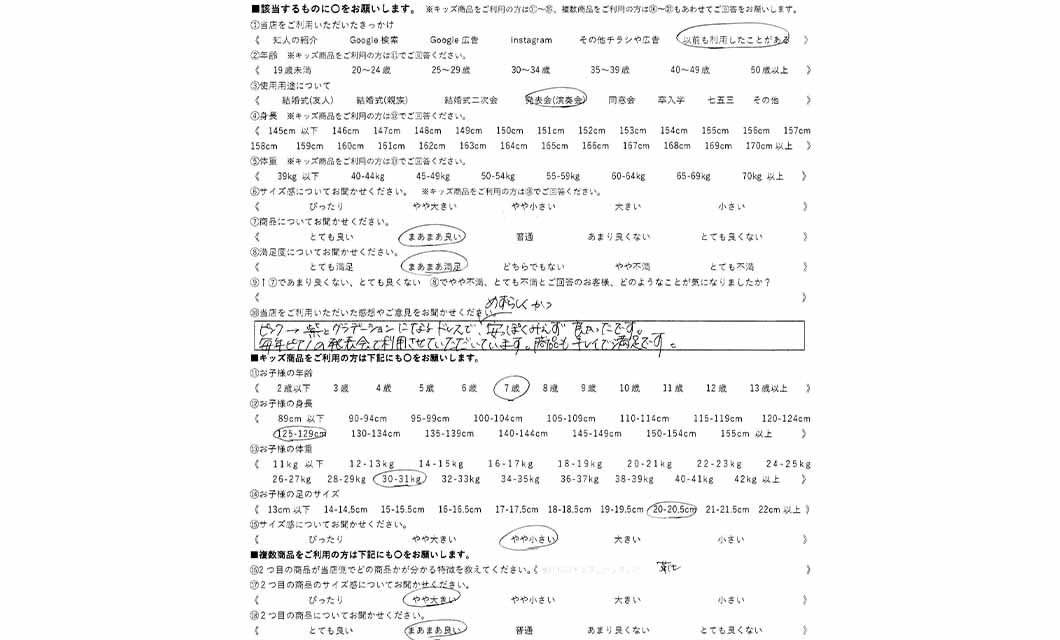 ■該当するものに〇をお願いします。 ※キッズ商品をご利用の方は⑪～⑮、複数商品をご利用の方は⑯～⑳もあわせてご回答をお願いします。
①当店をご利用いただいたきっかけ
《 知人の紹介 Google 検索 Google 広告 Instagram その他チラシや広告 以前も利用したことがある 》
②年齢 ※キッズ商品をご利用の方は⑪でご回答ください。
《 19歳未満 20～24歳 25～29歳 30～34歳 35～39歳 40～49歳 50歳以上 》
③使用用途について
《 結婚式(友人) 結婚式(親族) 結婚式二次会 発表会(演奏会) 同窓会 卒入学 七五三 その他 》
④身長 ※キッズ商品をご利用の方は⑫でご回答ください。
《 145cm 以下 146cm 147cm 148cm 149cm 150cm 151cm 152cm 153cm 154cm 155cm 156cm 157cm
158cm 159cm 160cm 161cm 162cm 163cm 164cm 165cm 166cm 167cm 168cm 169cm 170cm以上 》
⑤体重 ※キッズ商品をご利用の方は⑬でご回答ください。
《 39kg 以下 40-44kg 45-49kg 50-54kg 55-59kg 60-64kg 65-69kg 70kg 以上 》
⑥サイズ感についてお聞かせください。 ※キッズ商品をご利用の方は⑮でご回答ください。
《 ぴったり やや大きい やや小さい 大きい 小さい 》
⑦商品についてお聞かせください。
《 とても良い まあまあ良い 普通 あまり良くない とても良くない 》
⑧満足度についてお聞かせください。
《 とても満足 まあまあ満足 どちらでもない やや不満 とても不満 》
⑨↑⑦であまり良くない、とても良くない ⑧でやや不満、とても不満とご回答のお客様、どのようなことが気になりましたか？
《 》
⑩当店をご利用いただいた感想やご意見をお聞かせください。
めずらしくかつ
ピンク→紫とグラデーションになるドレスで、安っぽくみえず 良かったです。
毎年ピアノの発表会で利用させていただいています。商品もキレイで満足です。
■キッズ商品をご利用の方は下記にも〇をお願いします。
⑪お子様の年齢
《 2歳以下 3歳 4歳 5歳 6歳 7歳 8歳 9歳 10歳 11歳 12歳 13歳以上 》
⑫お子様の身長
《 89cm 以下 90-94cm 95-99cm 100-104cm 105-109cm 110-114cm 115-119cm 120-124cm
125-129cm 130-134cm 135-139cm 140-144cm 145-149cm 150-154cm 155cm 以上 》
⑬お子様の体重
《 11kg 以下 12-13kg 14-15kg 16-17kg 18-19kg 20-21kg 22-23kg 24-25kg
26-27kg 28-29kg 30-31kg 32-33kg 34-35kg 36-37kg 38-39kg 40-41kg 42kg 以上 》
⑭お子様の足のサイズ
《 13cm以下 14-14.5cm 15-15.5cm 16-16.5cm 17-17.5cm 18-18.5cm 19-19.5cm 20-20.5cm 21-21.5cm 22cm以上 》
⑮サイズ感についてお聞かせください。
《 ぴったり やや大きい やや小さい 大きい 小さい 》
■複数商品をご利用の方は下記にも〇をお願いします。
⑯2つ目の商品が当店側でどの商品かが分かる特徴を教えてください。《 》
⑰2つ目の商品のサイズ感についてお聞かせください。
《 ぴったり やや大きい やや小さい 大きい 小さい 》
⑱2つ目の商品についてお聞かせください。
《 とても良い まあまあ良い 普通 あまり良くない とても良くない 》